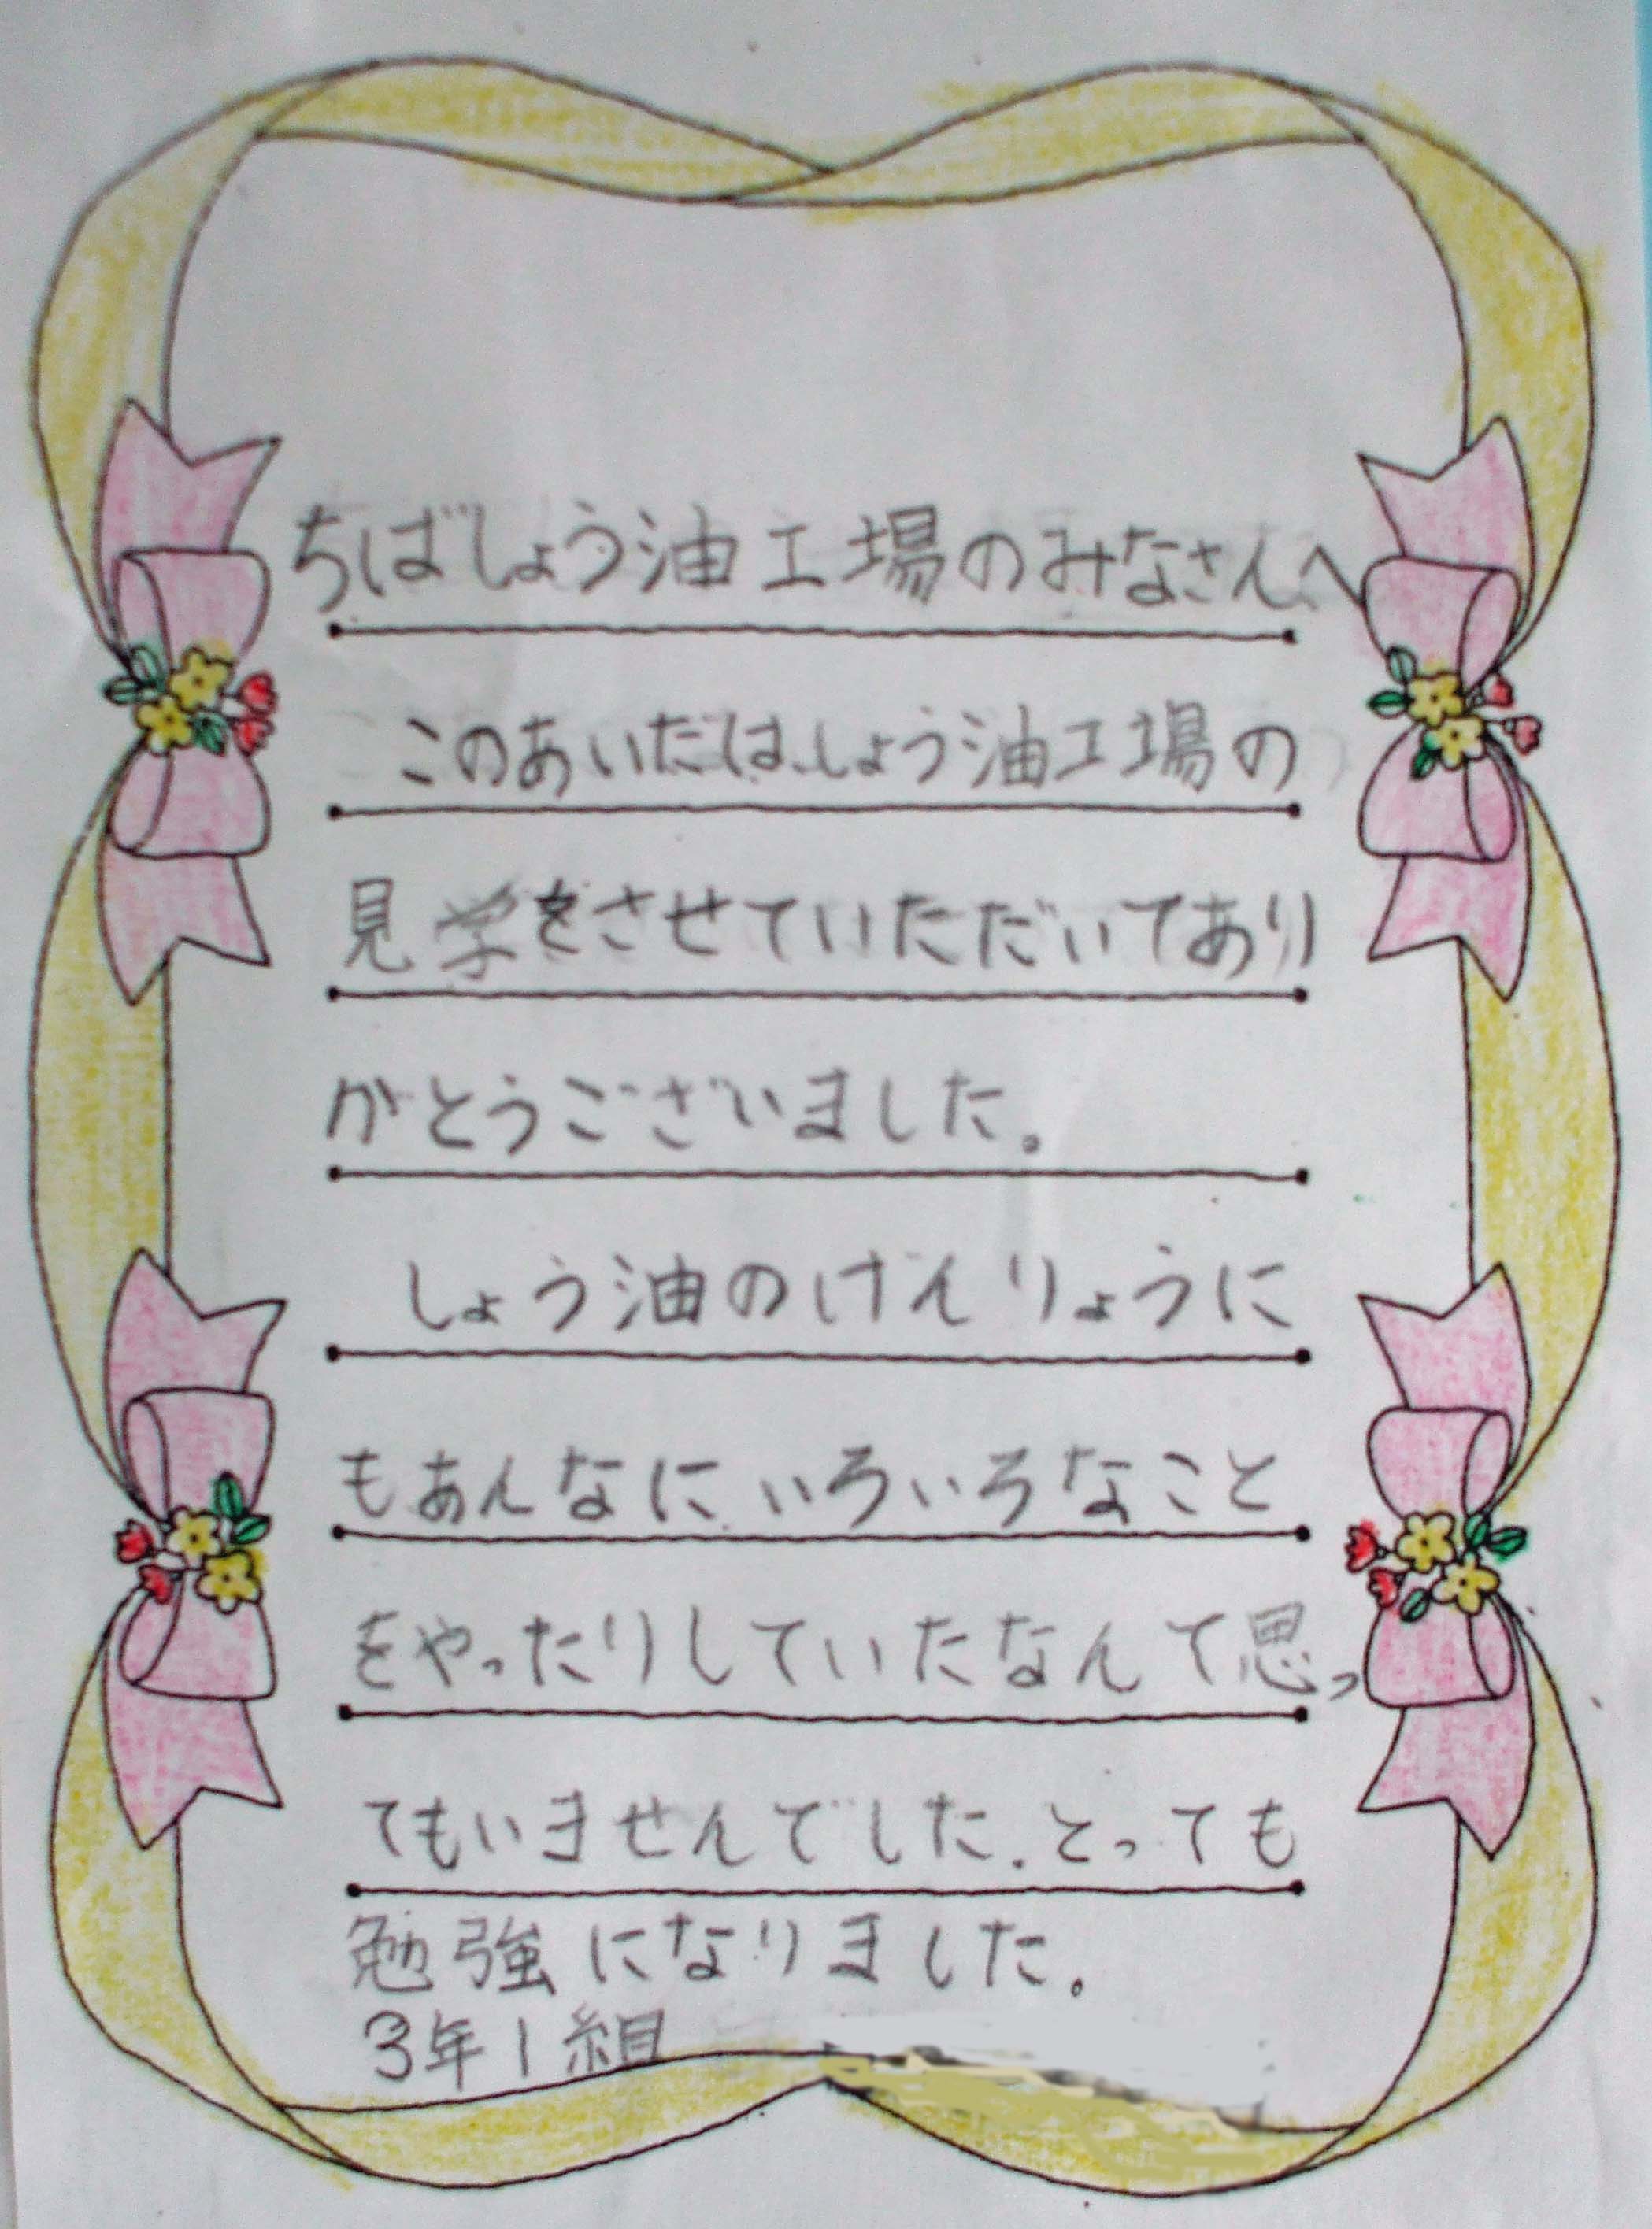 ちばしょう油工場のみなさんへ
このあいだは、しょう油工場の
見学をさせていただいてあり
がとうございました。
しょう油のげんりょうに
もあんなに、いろいろなこと
をやったりしていたなんて思っ
てもいませんでした。とっても
勉強になりました。
3年1組